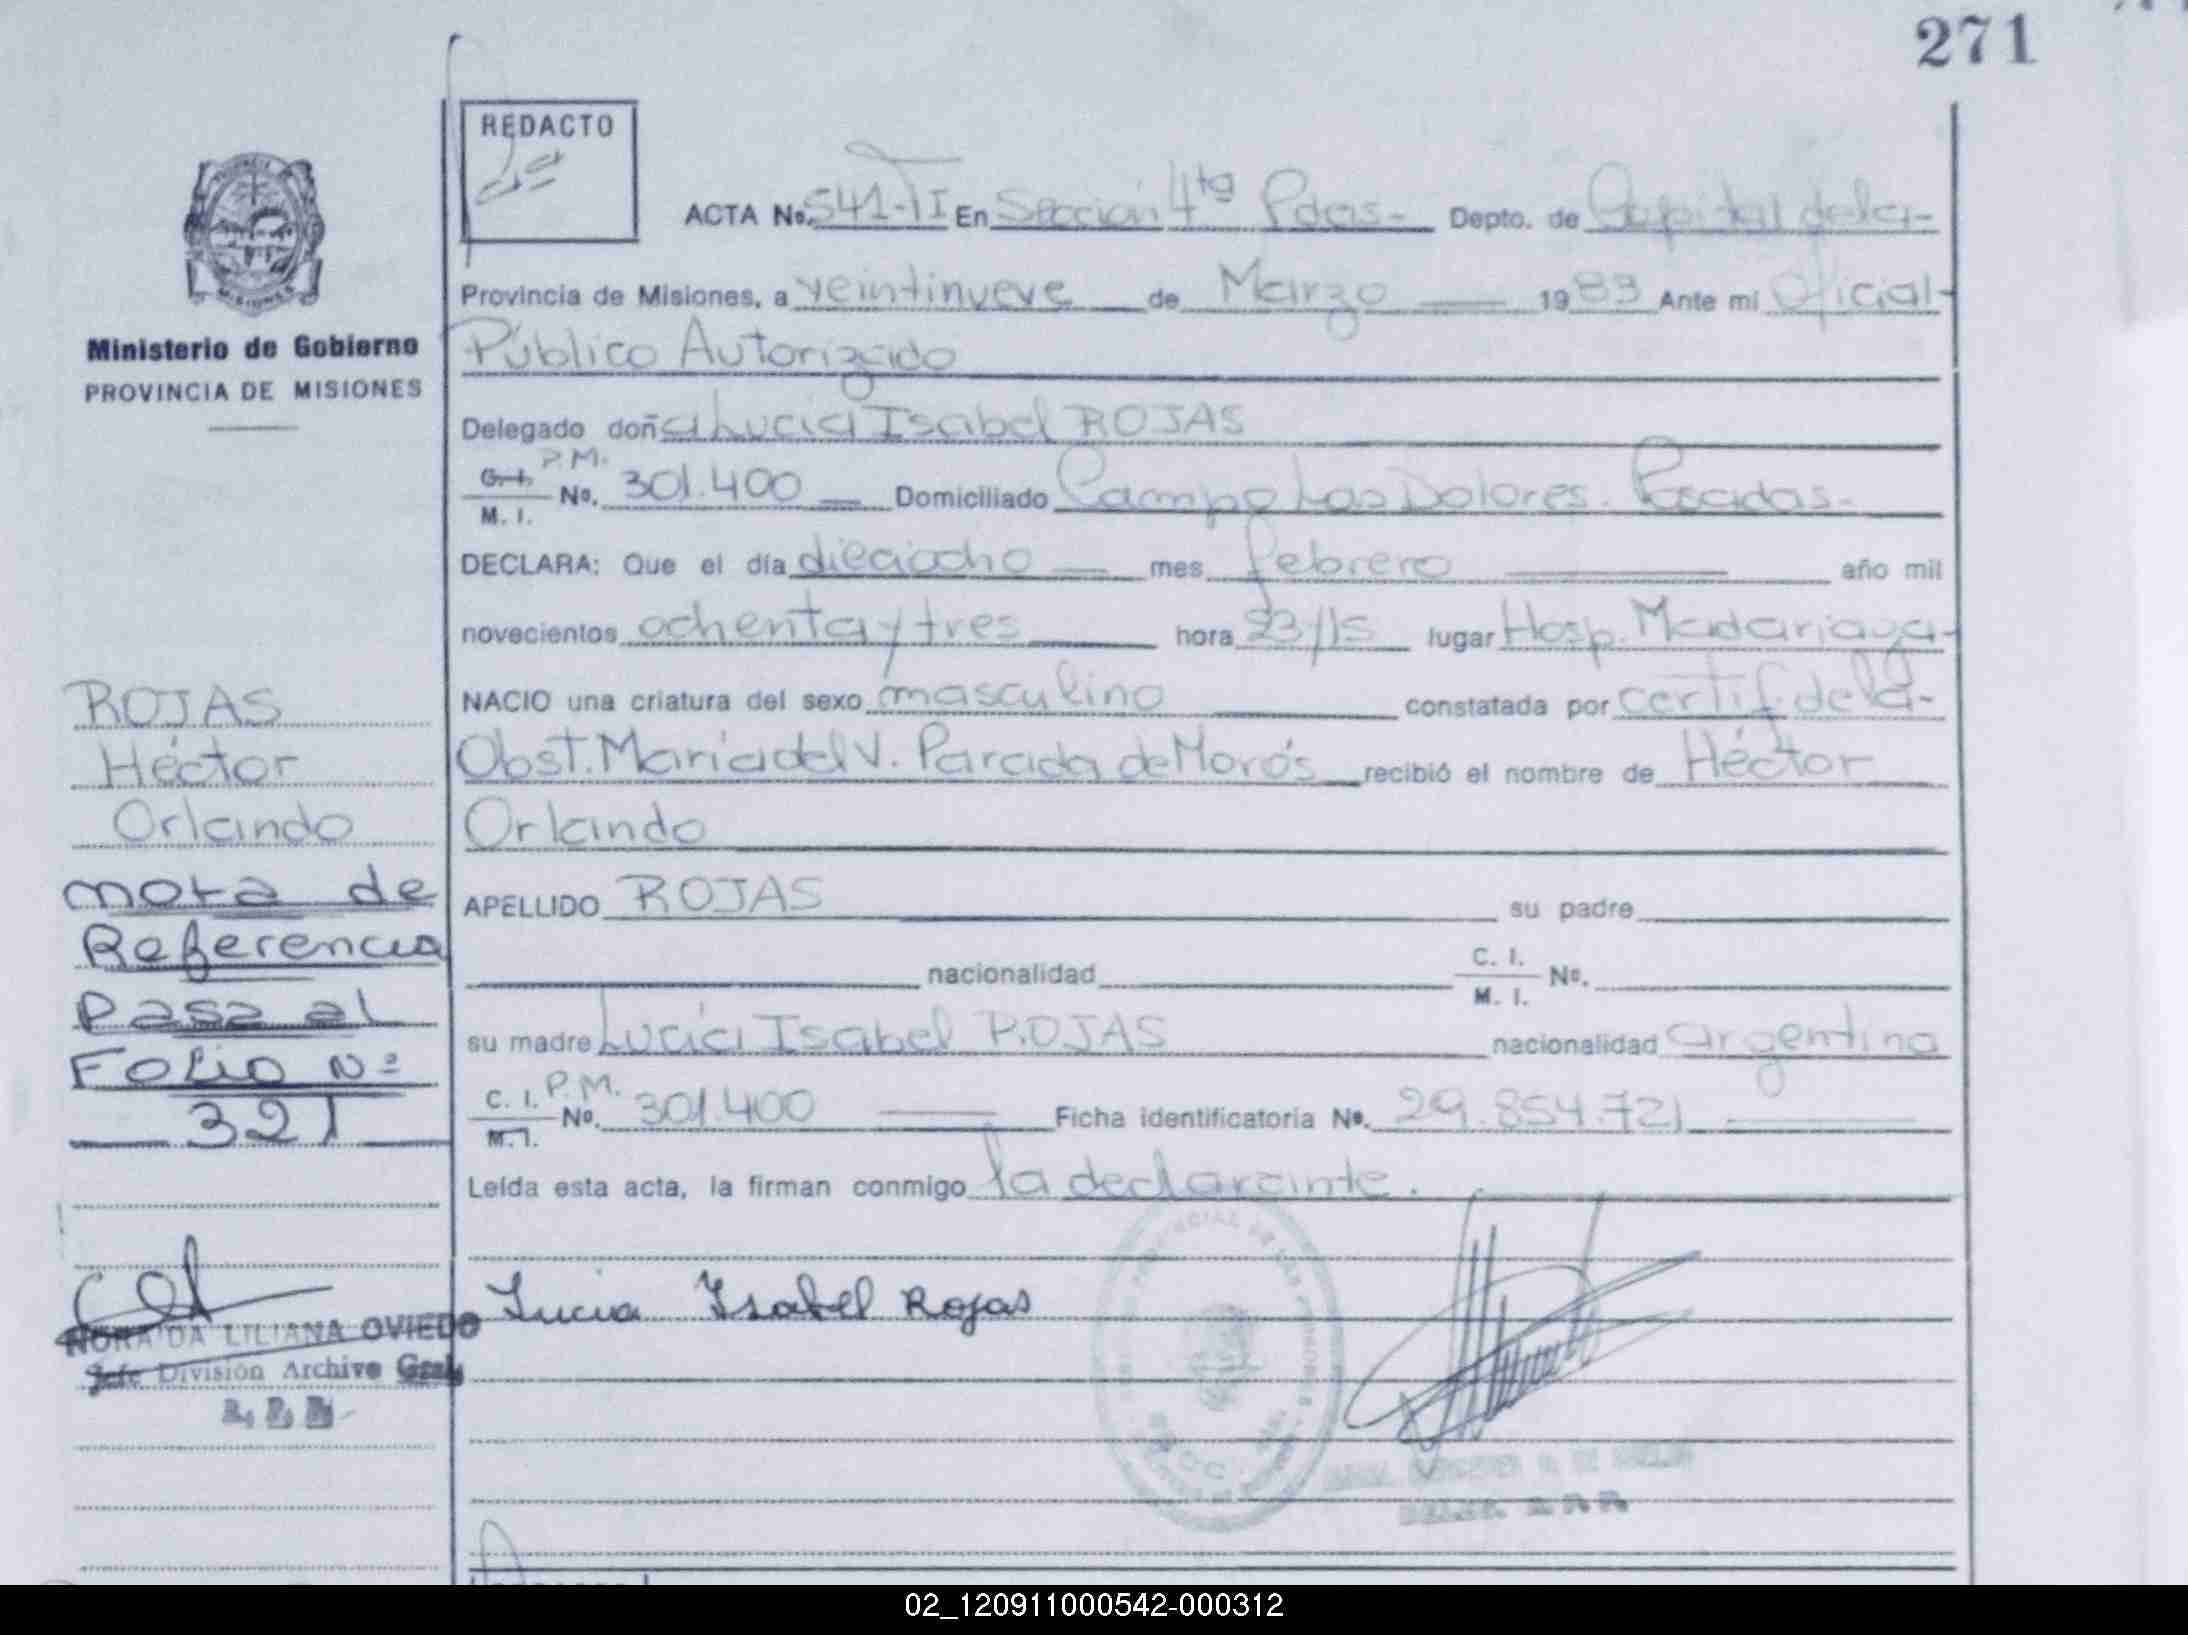 271
REDACTO
ACTA No. 541-TI En Sección 4ta Pdas- Depto. de Capital de la-
Provincia de Misiones, a veintinueve de Marzo 1983 Ante mi Oficial-
Público Autorizado
Delegado doña Lucia Isabel ROJAS
P.M.
C.I. M.I. No. 301.400 Domiciliado Campo Las Dolores. Posadas-
DECLARA: Que el día dieciocho mes febrero año mil
novecientos ochenta y tres hora 23/15 lugar Hosp. Madariaga-
NACIO una criatura del sexo masculino constatada por certif. de la-
Obst. Maria del V. Parada de Morós recibió el nombre de Héctor
Orlando
APELLIDO ROJAS su padre
nacionalidad C. I. M. I. No.
su madre Lucia Isabel ROJAS nacionalidad argentina
C. I. P.M. M.I. No. 301.400 Ficha identificatoria No. 29.854.721
Leída esta acta, la firman conmigo la declarante.
Lucia Isabel Rojas
Ministerio de Gobierno
PROVINCIA DE MISIONES
ROJAS
Héctor
Orlando
nota de
Referencia
Pasa al
Folio Nº
321
LILIANA OVIEDO
Jefe División Archivo Gral.
02_120911000542-000312